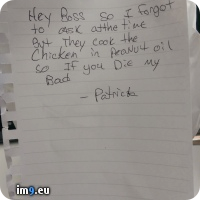 Hey Boss so I Forgot
to ask at the time
But They cook the
Chicken in Peanut oil
so If you Die my
Bad
- Patrick
im9.eu